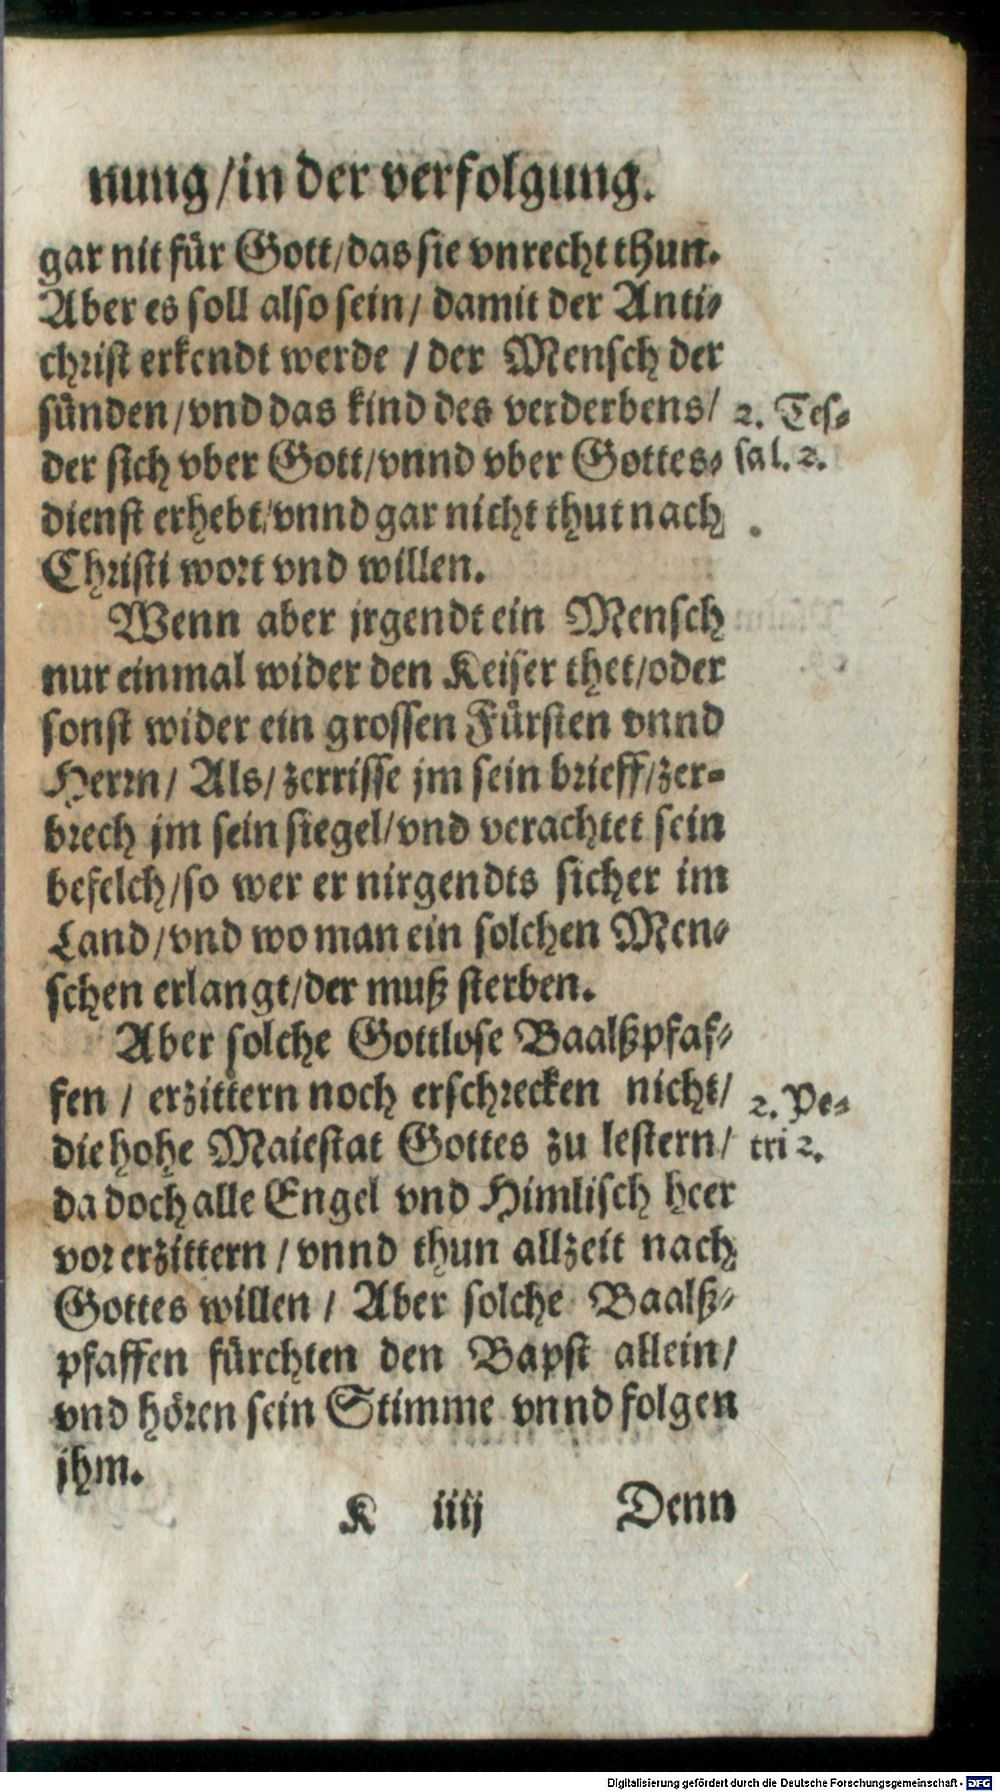 nung/in der verfolgung.
gar nit für Gott/das sie vnrecht thun.
Aber es soll also sein/ damit der Anti-
christ erkendt werde / der Mensch der
sünden/vnd das kind des verderbens/
2. Tes-
der sich vber Gott/vnnd vber Gottes-
sal. 2.
dienst erhebt/vnnd gar nicht thut nach
Christi wort vnd willen.
Wenn aber jrgendt ein Mensch
nur einmal wider den Keiser thet/oder
sonst wider ein grossen Fürsten vnnd
Herrn/ Als/ zerrisse jm sein brieff/zer-
brech jm sein siegel/vnd verachtet sein
befelch/so wer er nirgendts sicher im
Land/vnd wo man ein solchen Men-
schen erlangt/der muß sterben.
Aber solche Gottlose Baalßpfaf-
fen / erzittern noch erschrecken nicht/
2. Pe-
die hohe Maiestat Gottes zu lestern/
tri 2.
da doch alle Engel vnd Himlisch heer
vor erzittern / vnnd thun allzeit nach
Gottes willen / Aber solche Baalß-
pfaffen fürchten den Bapst allein/
vnd hören sein Stimme vnnd folgen
jhm.
K iiij Denn
Digitalisierung gefördert durch die Deutsche Forschungsgemeinschaft - DFG